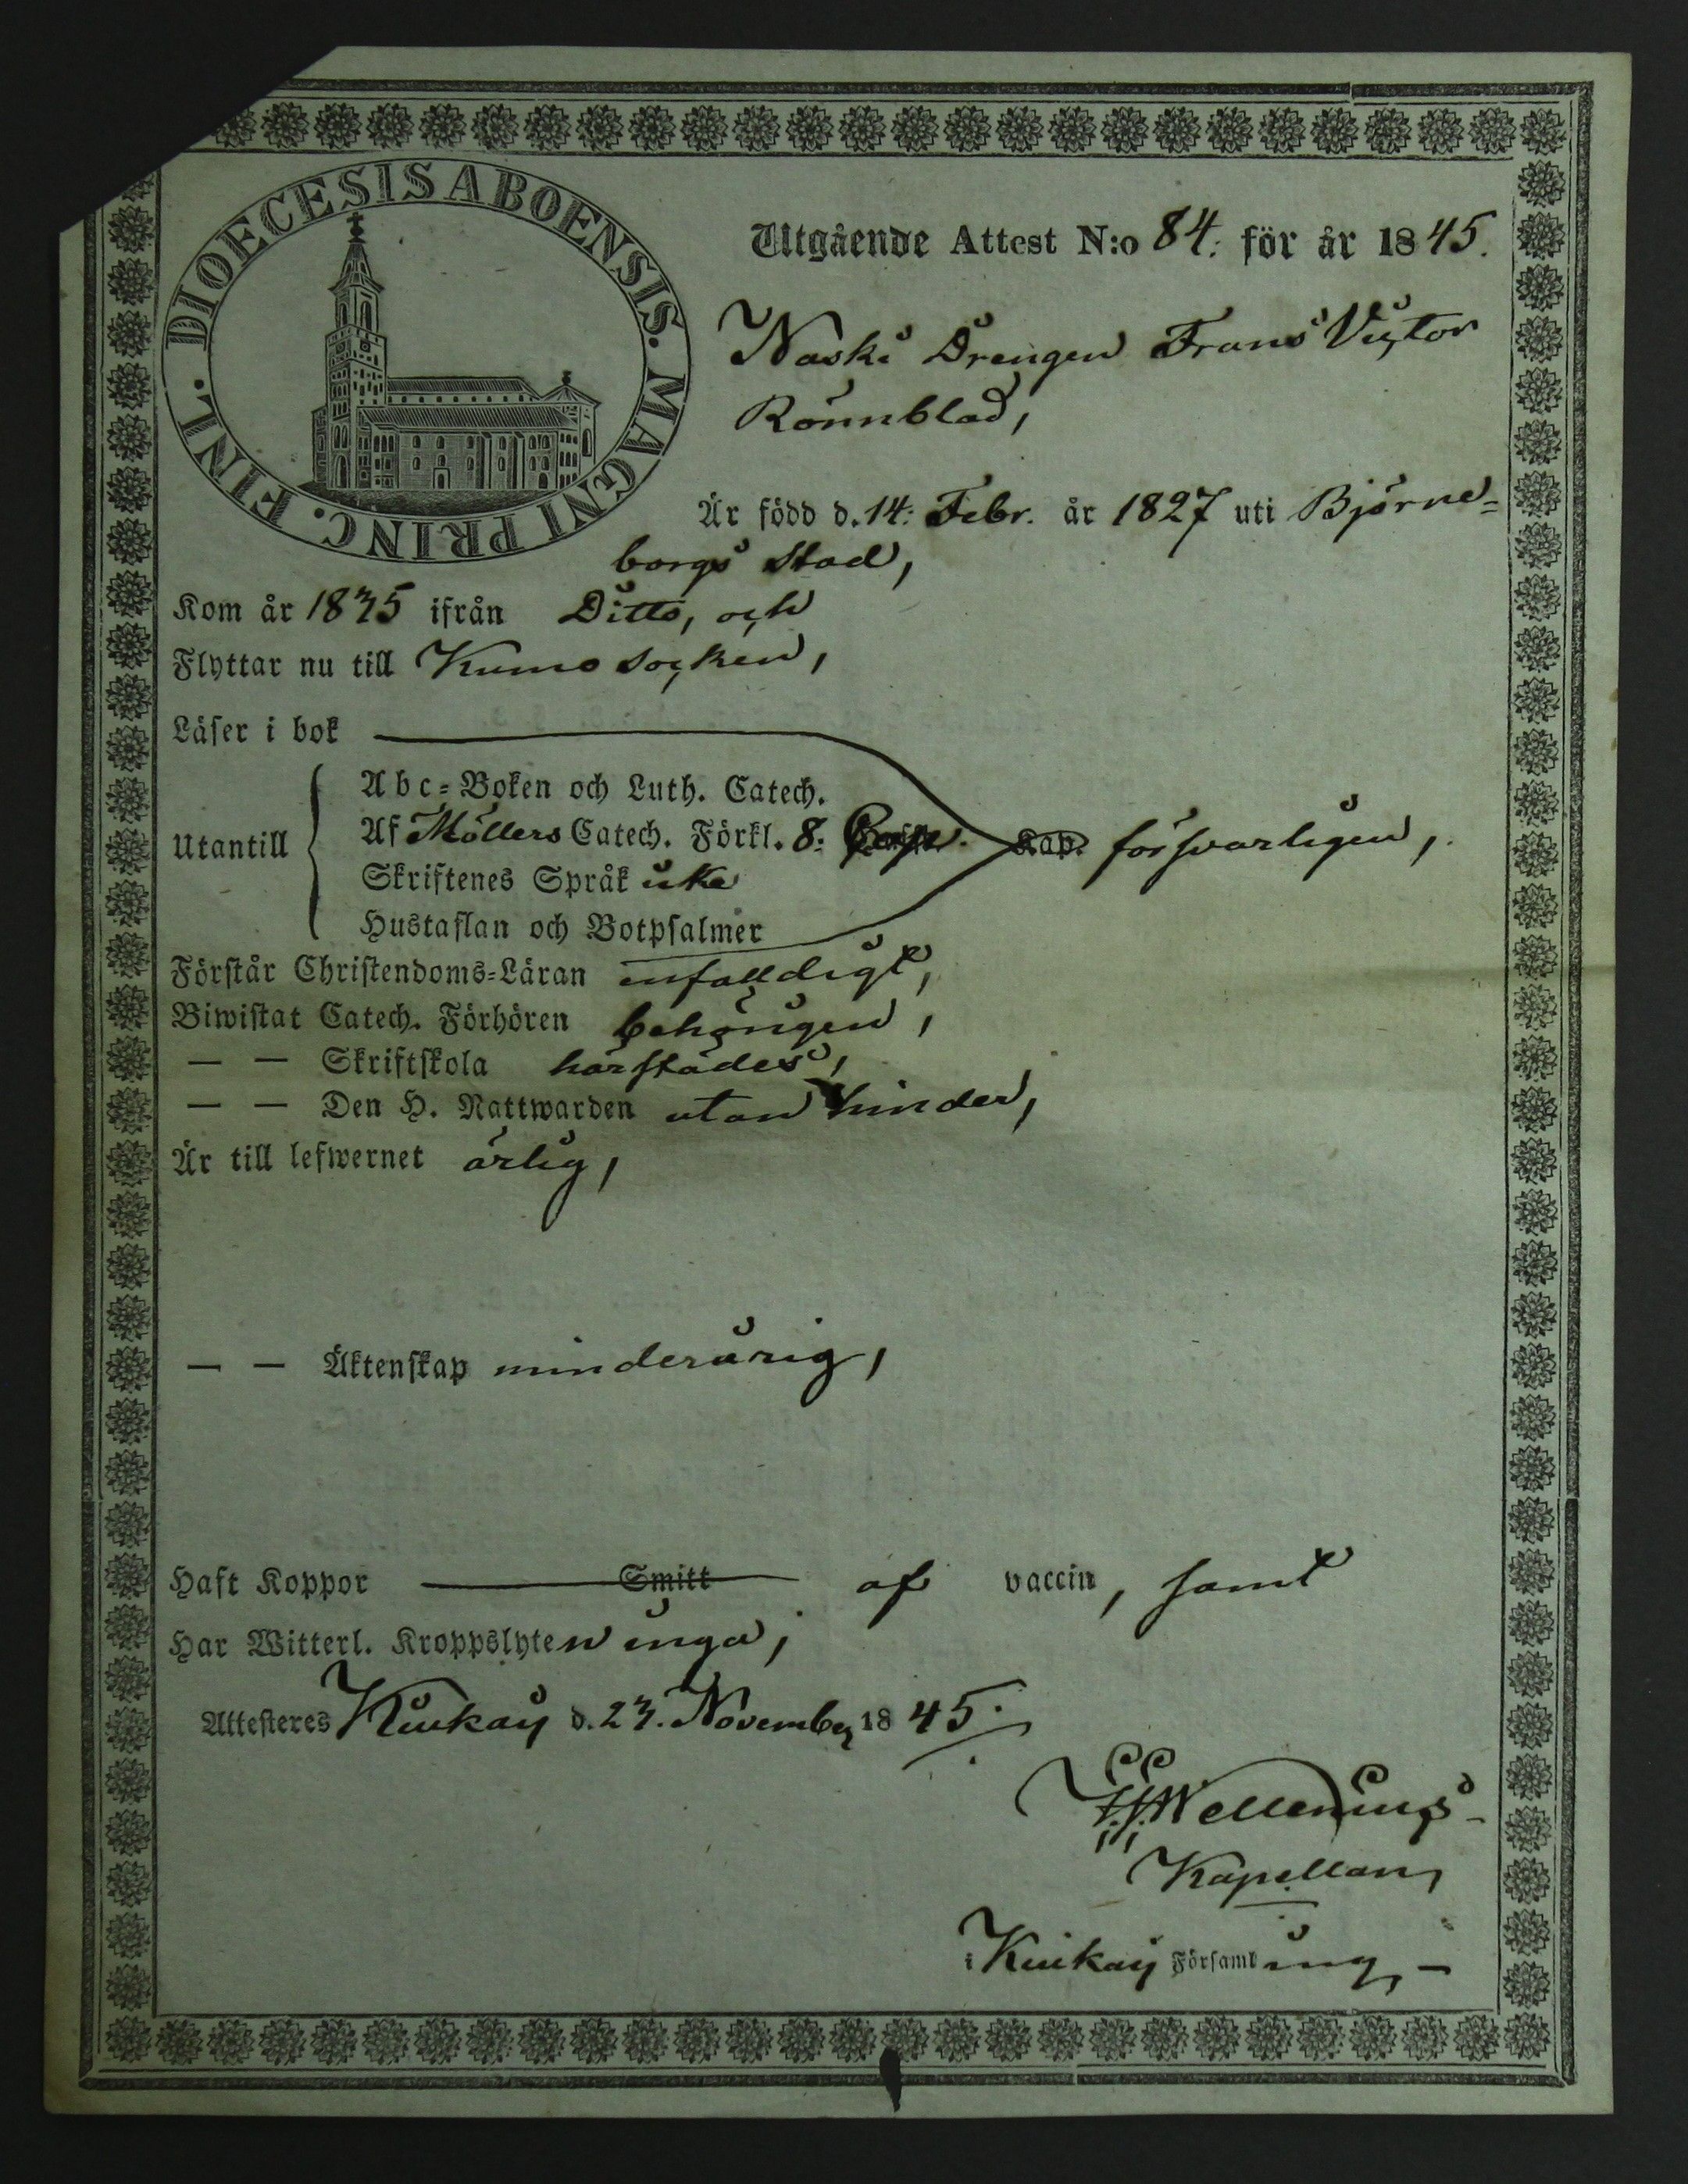 DIOECESIS ABOENSIS. MAGNI PRINC. FINL.
Utgående Attest N:o 84. för år 1845.
Naski Drengen Frans Victor
Rönnblad,
Är född d. 14: Febr. år 1827 uti Björne-
borgs stad,
Kom år 1835 ifrån Ditto, och
Flyttar nu till Kumo socken,
Läser i bok
Utantill
Abc-Boken och Luth. Catech.
Af Möllers Catech. Förkl. 8: Cap. Kap. försvarligen,
Skriftenes Språk icke
Hustaflan och Botpsalmer
Förstår Christendoms-Läran enfalldigt,
Biwistat Catech. Förhören behörigen,
— — Skriftskola härstädes,
— — Den H. Nattwarden utan hinder,
Är till lefwernet ärlig,
— — Äktenskap minderårig,
Haft Koppor Smitt af vaccin, samt
Har Witterl. Kroppslyten inga;
Attesteres Kiukais d. 23. November 1845.
Kapellan,
i Kiukais Församling,